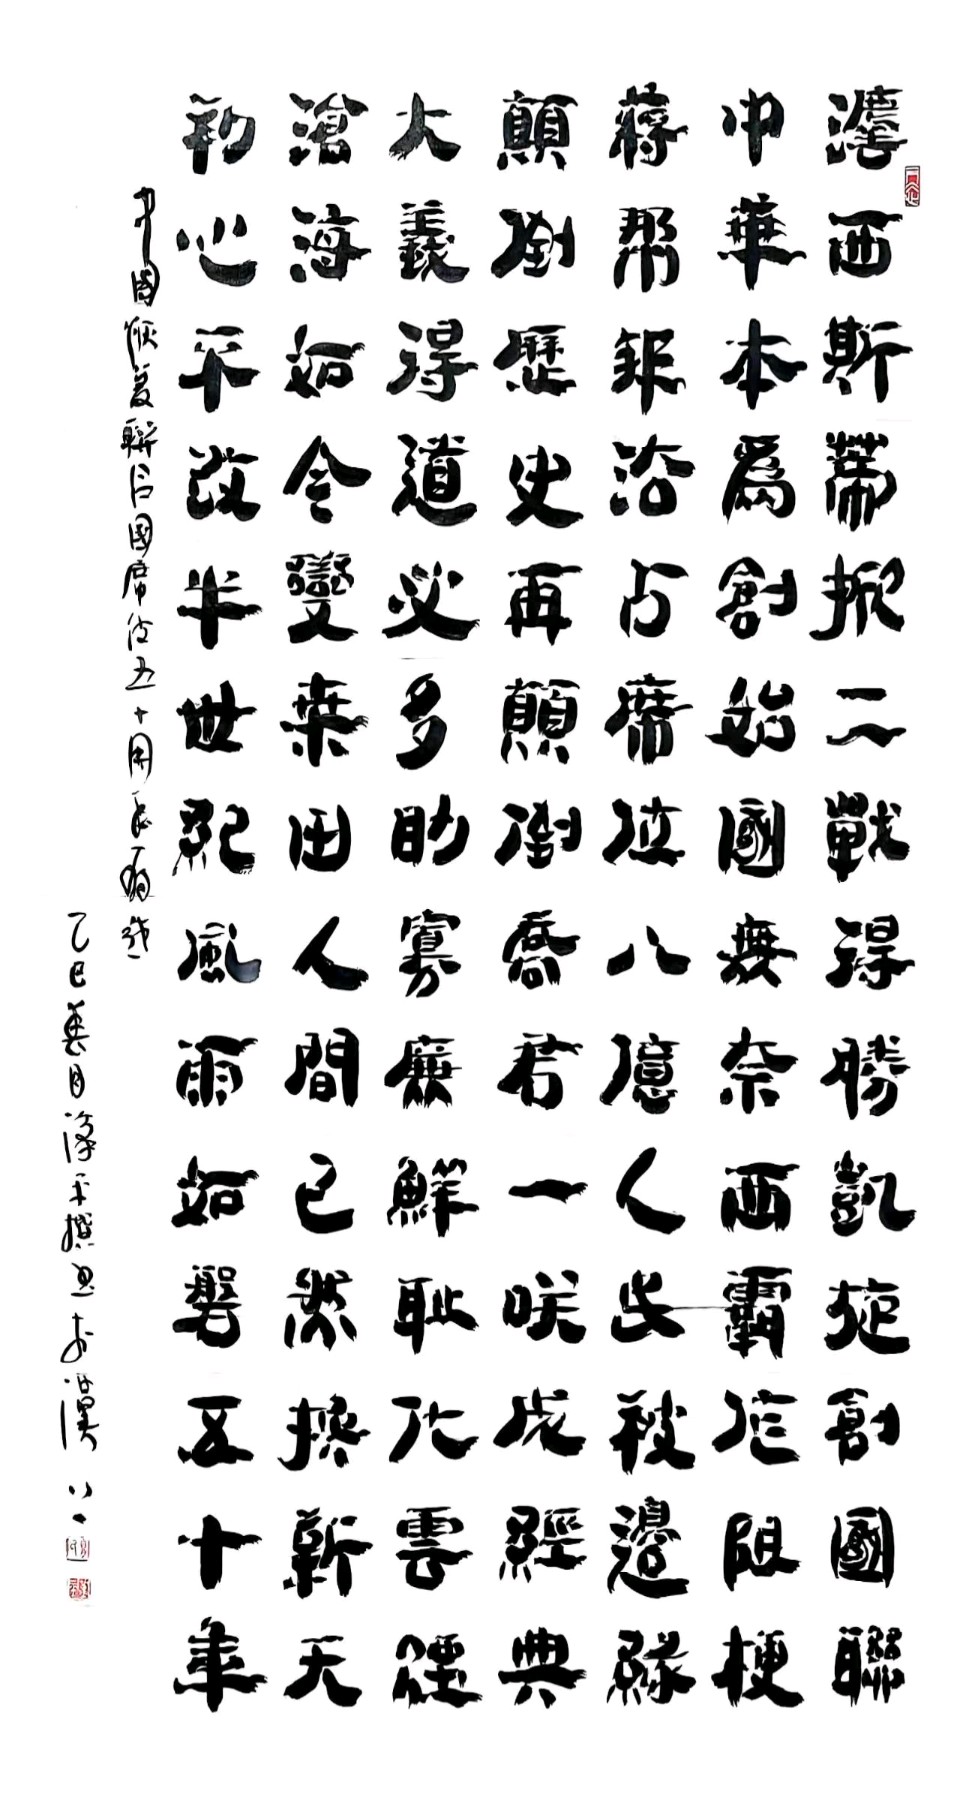 灋西斯蒂掀二戰得勝凱旋創國聯
中華本爲創始國無奈西霸作阻梗
蔣帮沿占席位八億人民被邊緣
顛倒歷史再顛倒喬君一咲成經典
大義得道必多助寡廉鮮耻化雲煙
滄海如今變桑田人間已然換新天
初心不改半世紀風雨如磐五十年
中國恢復聯合國席位五十周年有感
乙巳春月平撰書於漢上